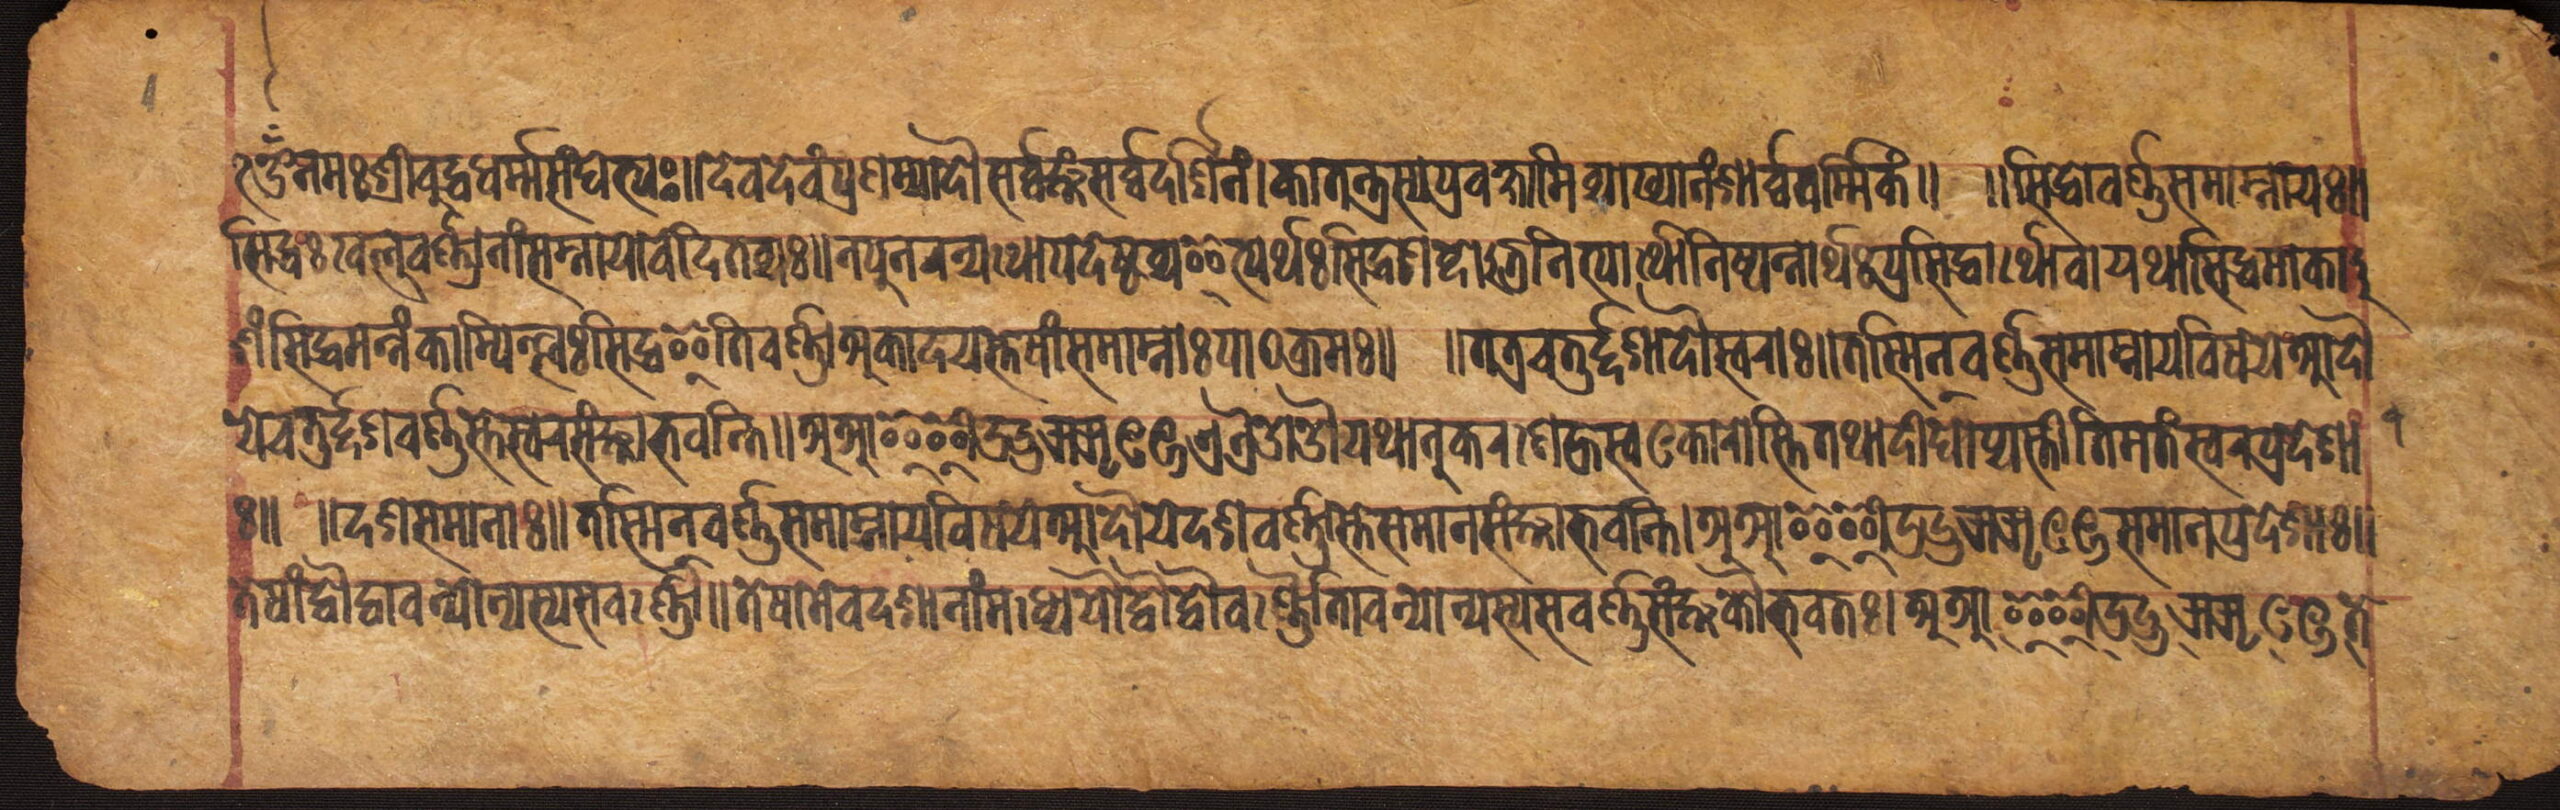 ॐ नमः श्रीबुद्धधर्म्मसंघेभ्यः॥ देवदेवं प्रणम्यादौ सर्व्वज्ञं सर्व्वदर्शिनं। कातन्त्रस्य प्रवक्ष्यामि व्याख्यानं शार्व्ववर्म्मिकं॥ ॥ सिद्धो वर्ण्णसमाम्नायः॥
सिद्धः खलु वर्ण्णानां समाम्नायो वेदितव्यः॥ न पुनरन्यथोपदेष्टव्य इत्यर्थः सिद्धशब्दोऽत्र नित्यार्थो निष्पन्नार्थः प्रसिद्धार्थो वा यथा सिद्धमाका
शं सिद्धमन्नं काम्पिल्लः सिद्ध इति वर्ण्णा अकादयस्तेषां समाम्नाः पाठक्रमः॥ ॥ तत्र चतुर्द्दशादौ स्वराः॥ तस्मिन् वर्ण्णसमाम्नायविषये आदौ
ये चतुर्द्दश वर्ण्णास्ते स्वरसंज्ञा भवन्ति॥ अ आ इ ई उ ऊ ऋ ॠ ऌ ॡ ए ऐ ओ औ यथानुकरणे ह्रस्व ऌकारोस्ति तथा दीर्घोप्यस्तीति मतं स्वरप्रदेशा
ः॥ ॥ दश समानाः॥ तस्मिन वर्ण्णसमाम्नायविषये आदौ ये दश वर्ण्णास्ते समानसंज्ञा भवन्ति। अ आ इ ई उ ऊ ऋ ॠ ऌ ॡ समानप्रदेशाः॥
तेषां द्वौ द्वावन्योन्यस्य सवर्ण्णौ॥ तेषामेव दशानां मध्ये यौ द्वौ द्वौ वर्ण्णौ तावन्योन्यस्य सवर्ण्णसंज्ञकौ भवतः। अ आ इ ई उ ऊ ऋ ॠ ऌ ॡ ते